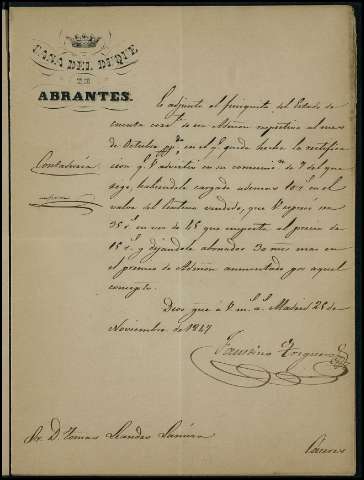 CASA DEL DUQUE
DE
ABRANTES.
Contaduría
Es adjunto el finiquito del Estado de
cuenta corr.te de su Admon respectivo al mes
de Octubre pp.do en el q.e queda hecha la rectifica
cion q.e V advierte en su comunic.on de 7 del que
rige, habiendole cargado ademas 10 r.s en el
valor del Centeno vendido, que V espresó
35 r.s en vez de 45 que importa al precio de
15 r.s y dejandole abonados 30 mrs mas en
el premio de Admon aumentado por aquel
concepto.
Dios gue á V m.s a.s Madrid 28 de
Noviembre de 1847
Faustino
Sr. D. Tomas Leandro
Cáceres